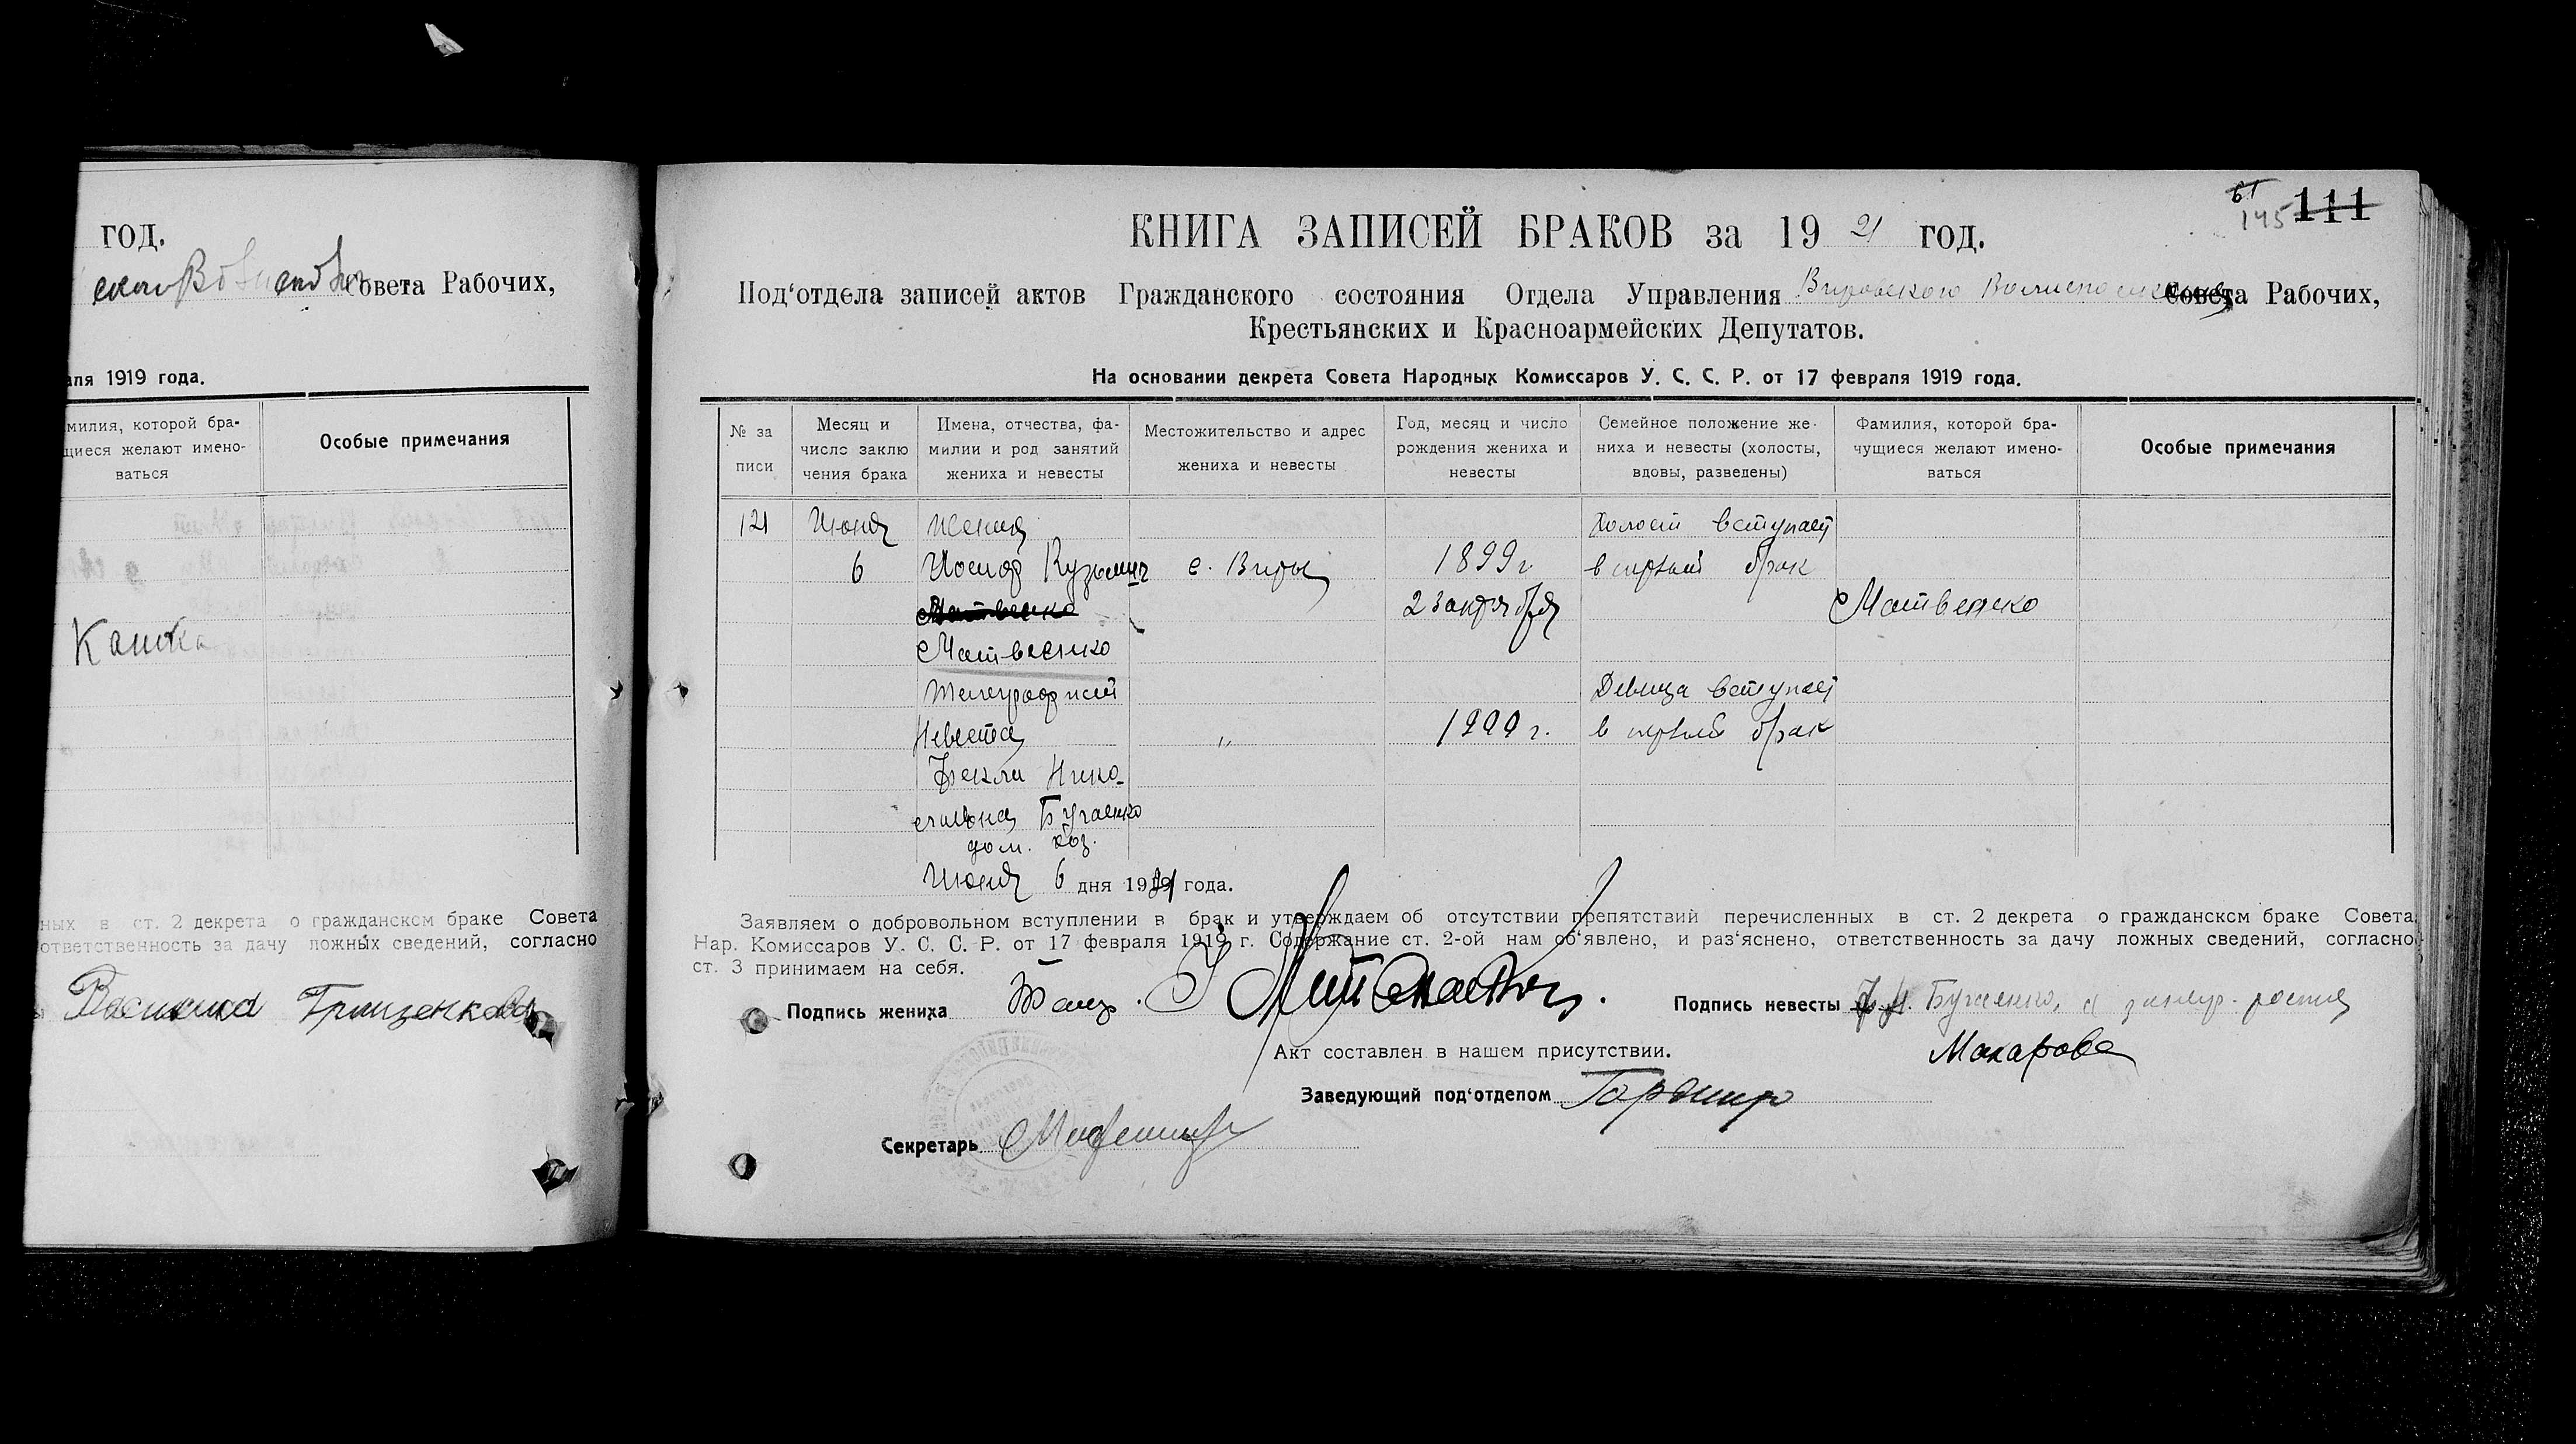 год.
Совета Рабочих,
1919 года.
милия, которой бра-
щиеся желают имено-
ваться
Особые примечания
ных в ст. 2 декрета о гражданском браке Совета
ответственность за дачу ложных сведений, согласно
Гриценкова
111
145
КНИГА ЗАПИСЕЙ БРАКОВ за 1921 год.
Под'отдела записей актов Гражданского состояния Отдела Управления Вировского Волисполкома Совета Рабочих,
Крестьянских и Красноармейских Депутатов.
На основании декрета Совета Народных Комиссаров У. С. С. Р. от 17 февраля 1919 года.
№ за
писи
Месяц и
число заклю
чения брака
Имена, отчества, фа-
милии и род занятий
жениха и невесты
Местожительство и адрес
жениха и невесты
Год, месяц и число
рождения жениха и
невесты
Семейное положение же-
ниха и невесты (холосты,
вдовы, разведены)
Фамилия, которой бра-
чущиеся желают имено-
ваться
Особые примечания
121
Июня
6
Жених
Иосиф Кузьмич
Матвеенко
Матвеенко
Телеграфист
Невеста
Фекла Нико-
лаевна Бугаенко
дом. хоз.
с. Виры
"
1899 г
23 октября
1900 г.
Холост вступает
в первый брак
Девица вступает
в первый брак
Матвеенко
Июня 6 дня 1921 года.
Заявляем о добровольном вступлении в брак и утверждаем об отсутствии препятствий перечисленных в ст. 2 декрета о гражданском браке Совета
Нар. Комиссаров У. С. С. Р. от 17 февраля 1919 г. Содержание ст. 2-ой нам об'явлено, и раз'яснено, ответственность за дачу ложных сведений, согласно
ст. 3 принимаем на себя.
Подпись жениха
Подпись невесты Бугаенко,
Макарова
Акт составлен в нашем присутствии.
Заведующий под'отделом
Секретарь